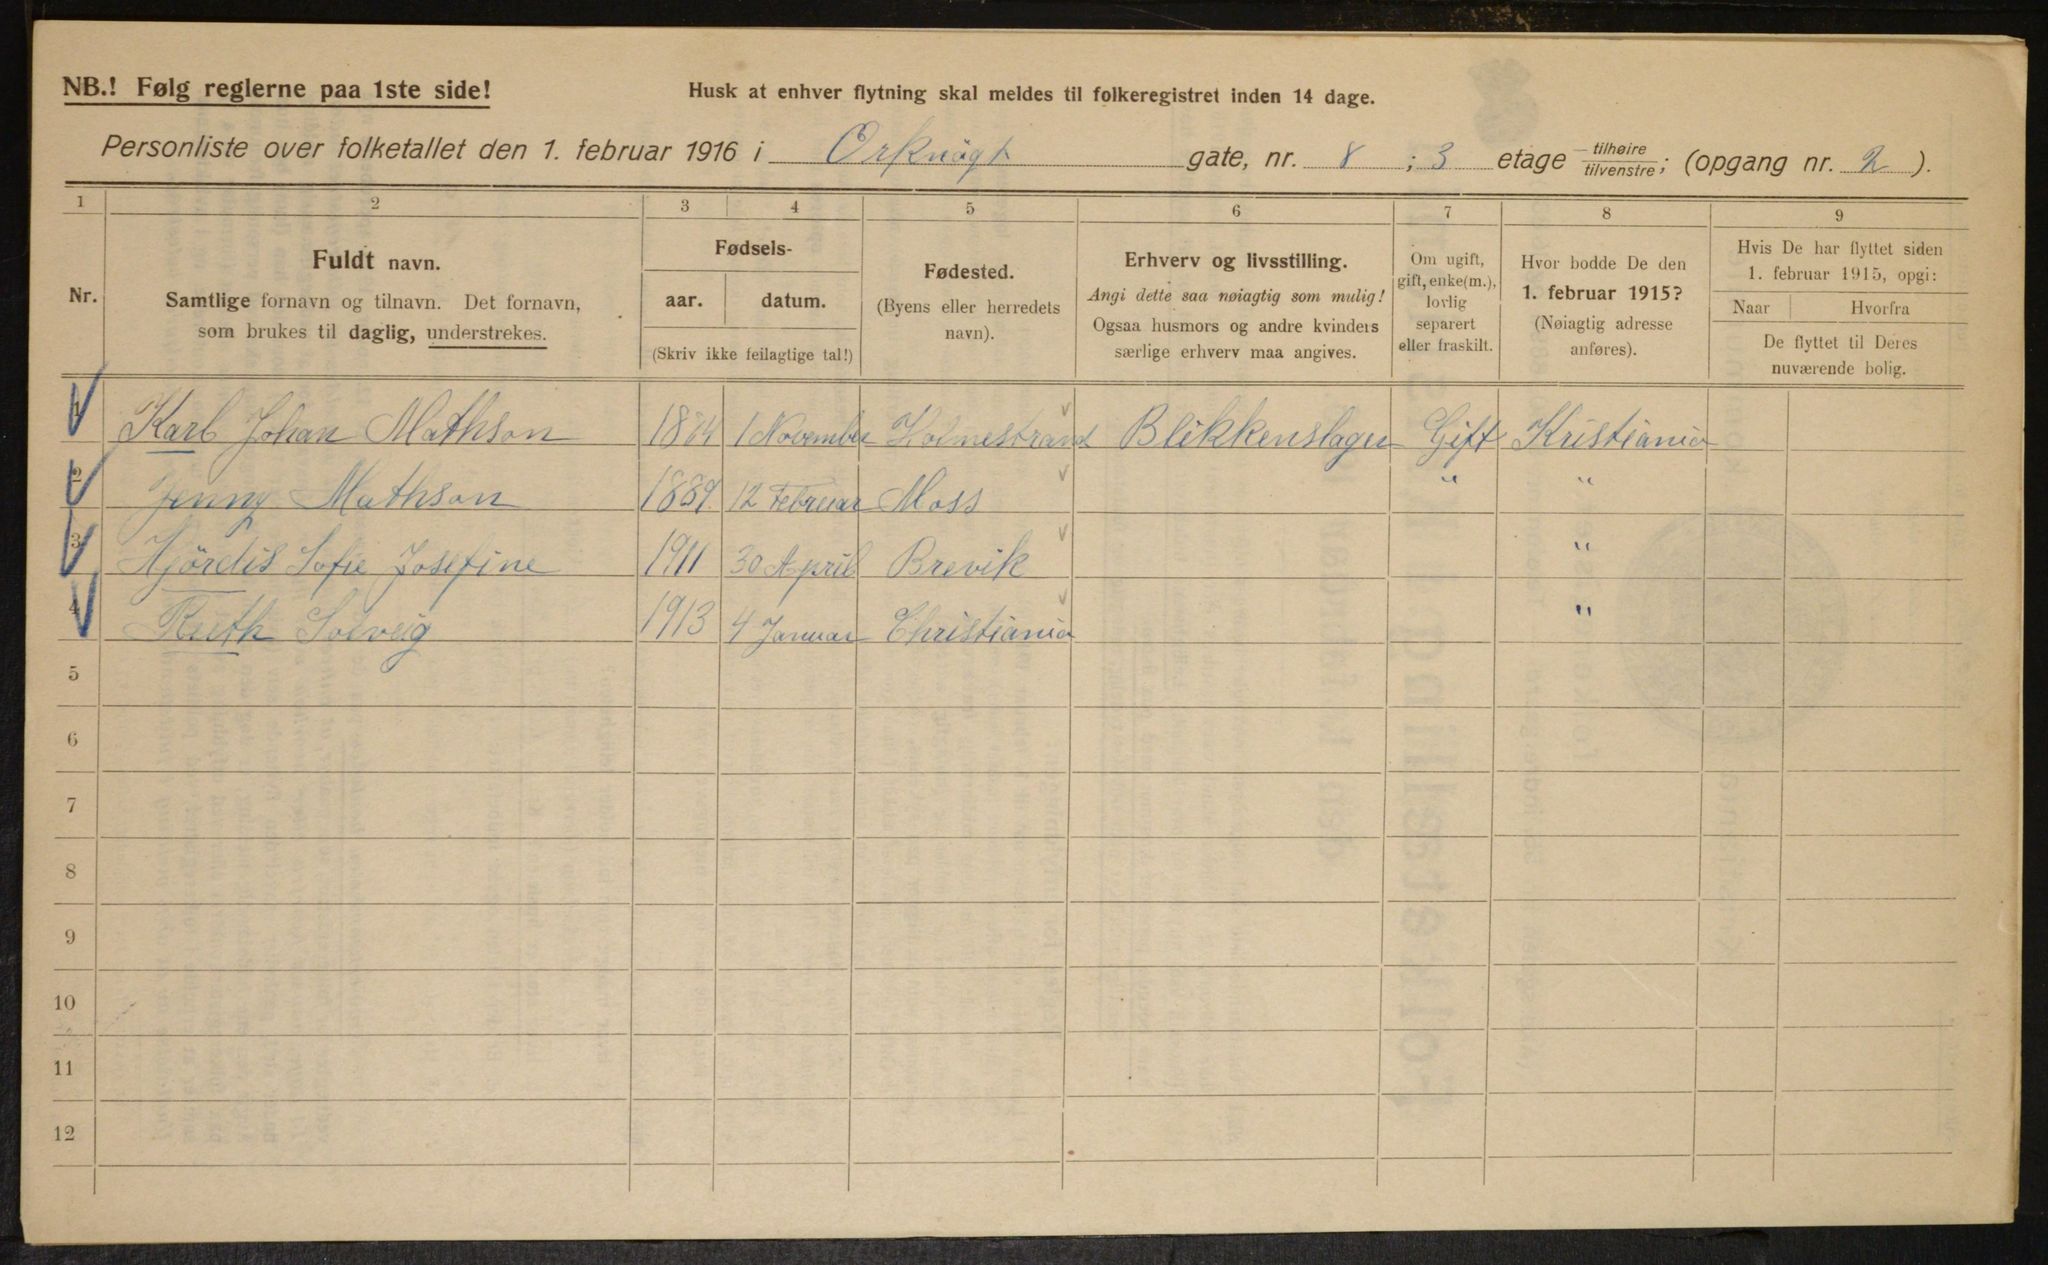 NB.! Følg reglerne paa 1ste side!
Husk at enhver flytning skal meldes til folkeregistret inden 14 dage.
Personliste over folketallet den 1. februar 1916 i Orknøgt gate, nr. 8 ; 3 etage tilhøire tilvenstre; (opgang nr. 2 ).
1 2 3 4 5 6 7 8 9
Nr.
Fuldt navn.
Samtlige fornavn og tilnavn. Det fornavn,
som brukes til daglig, understrekes.
Fødsels-
aar. datum.
(Skriv ikke feilagtige tal!)
Fødested.
(Byens eller herredets
navn).
Erhverv og livsstilling.
Angi dette saa nøiagtig som mulig!
Ogsaa husmors og andre kvinders
særlige erhverv maa angives.
Om ugift,
gift, enke(m.),
lovlig
separert
eller fraskilt.
Hvor bodde De den
1. februar 1915?
(Nøiagtig adresse
anføres).
Hvis De har flyttet siden
1. februar 1915, opgi:
Naar Hvorfra
De flyttet til Deres
nuværende bolig.
1 Karl Johan Mathson 1874 1 November Holmestrand Blikkenslager Gift Kristiania
2 Jenny Mathson 1889 12 Februar Moss " "
3 Hjördis Sofie Josefine 1911 30 April Brevik "
4 Ruth Solveig 1913 4 Januar Christiania "
5
6
7
8
9
10
11
12